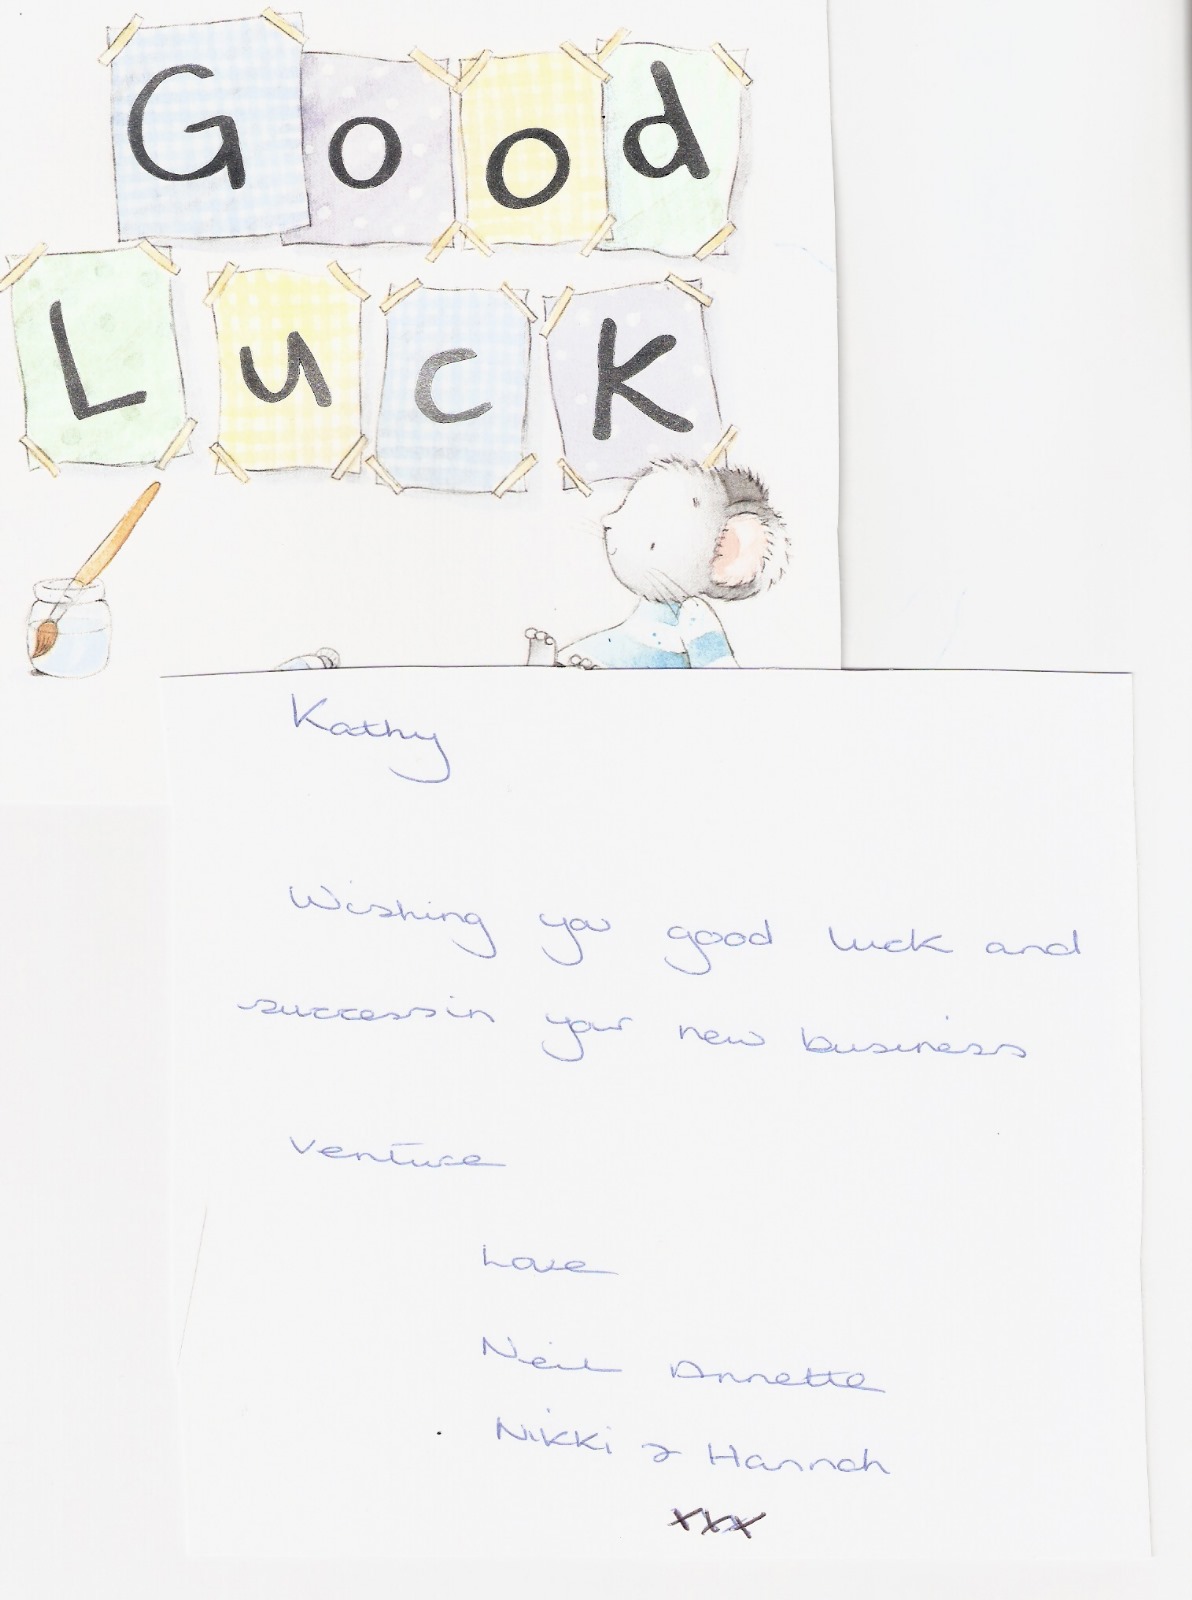 Good
Luck
Kathy
Wishing you good luck and
success in your new business
Venture
Love
Neil Annette
Nikki & Hannah
xxx